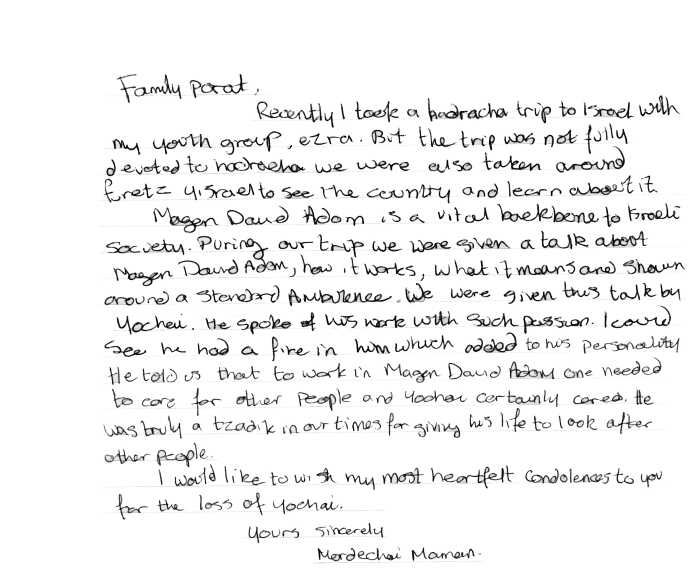 Family Porat,
Recently I took a hadracha trip to Israel with
my youth group, ezra. But the trip was not fully
devoted to hadracha we were also taken around
Eretz Yisrael to see the country and learn about it.
Magen David Adom is a vital backbone to Israeli
society. During our trip we were given a talk about
Magen David Adom, how it works, what it means and shown
around a standard Ambulence. We were given this talk by
Yochai. He spoke of his work with such passion. I could
see he had a fire in him which added to his personality
He told us that to work in Magen David Adom one needed
to care for other people and Yochai certainly cared. He
was truly a tzadik in our times for giving his life to look after
other people.
I would like to wish my most heartfelt condolences to you
for the loss of Yochai.
Yours sincerely
Mordechai Maman.